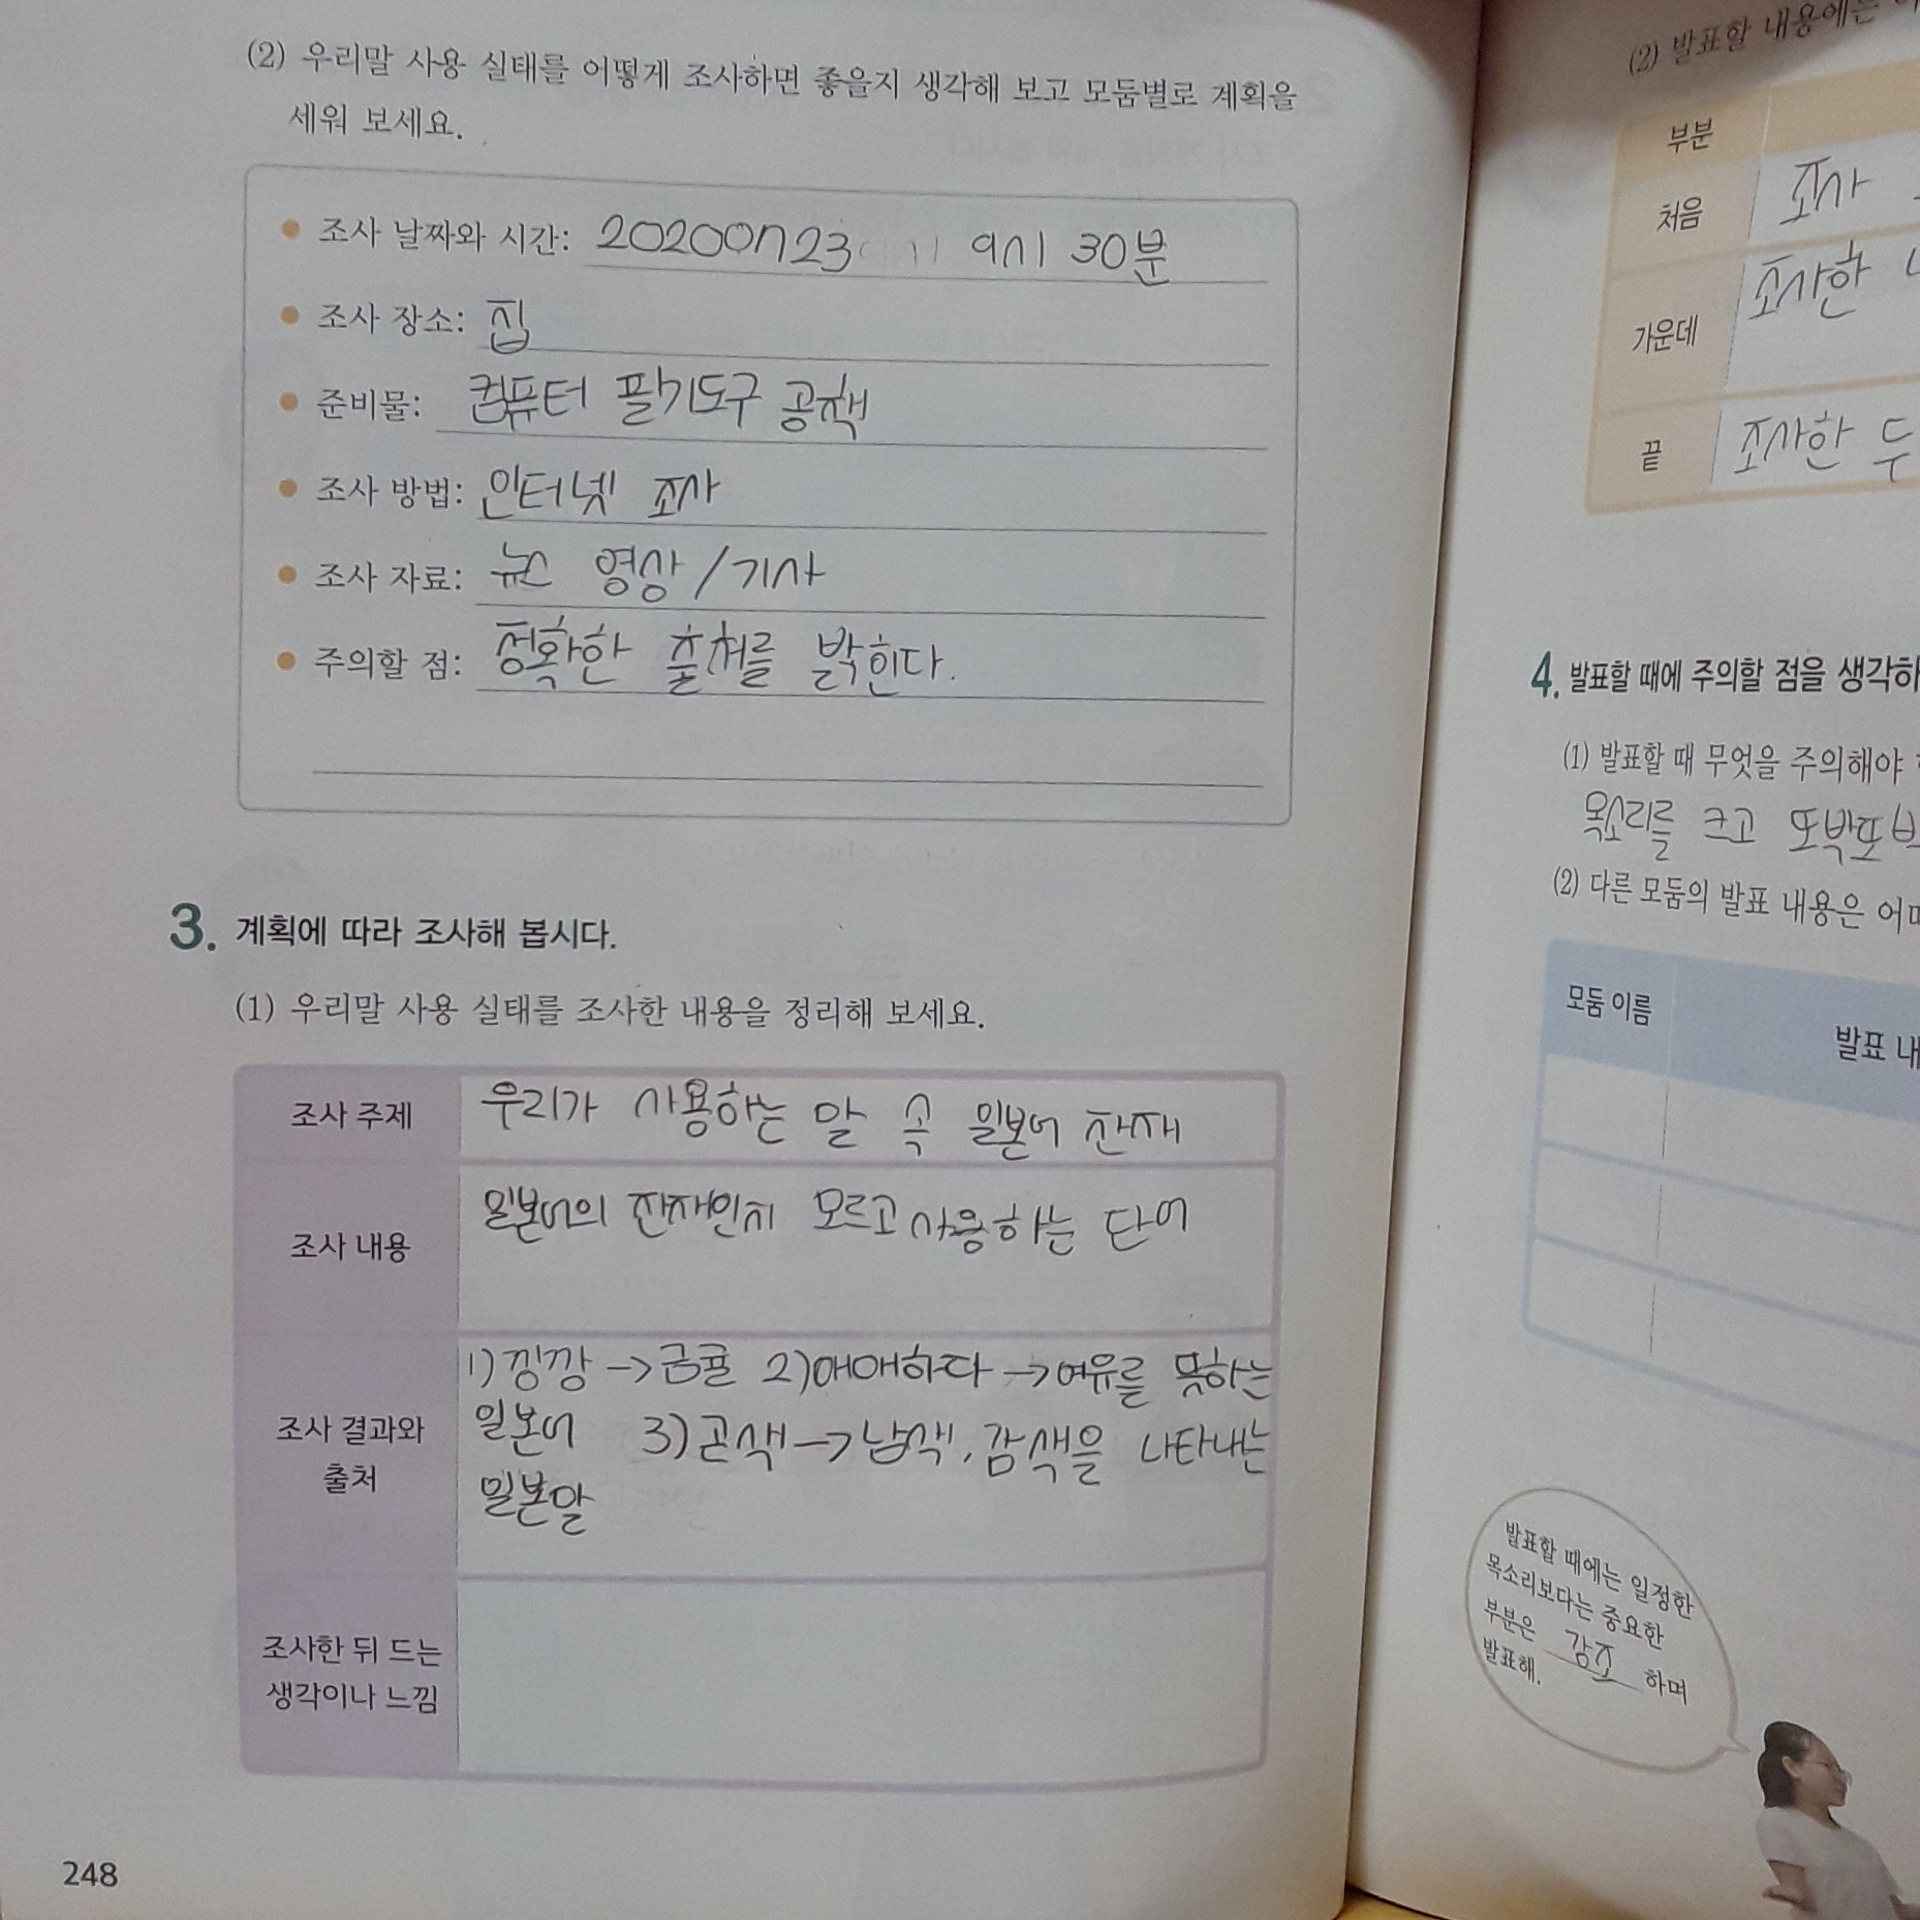 (2) 우리말 사용 실태를 어떻게 조사하면 좋을지 생각해 보고 모둠별로 계획을
세워 보세요.
조사 날짜와 시간: 20200723 9시 30분
조사 장소: 집
준비물: 컴퓨터 필기도구 공책
조사 방법: 인터넷 조사
조사 자료: 뉴스 영상/기사
주의할 점: 정확한 출처를 밝힌다.
3. 계획에 따라 조사해 봅시다.
(1) 우리말 사용 실태를 조사한 내용을 정리해 보세요.
조사 주제
우리가 사용하는 말 속 일본어 잔재
조사 내용
일본어의 잔재인지 모르고 사용하는 단어
조사 결과와
출처
1) 낑깡 → 금귤 2) 애매하다 → 여유를 뜻하는
일본어 3) 곤색 → 남색, 감색을 나타내는
일본말
조사한 뒤 드는
생각이나 느낌
248
(2) 발표할 내용에는
부분
처음
조사
가운데
조사한
끝
조사한
4. 발표할 때에 주의할 점을 생각하
(1) 발표할 때 무엇을 주의해야
목소리를 크고 또박또박
(2) 다른 모둠의 발표 내용은
모둠 이름
발표 내
발표할 때에는 일정한
목소리보다는 중요한
부분은 강조 하며
발표해.